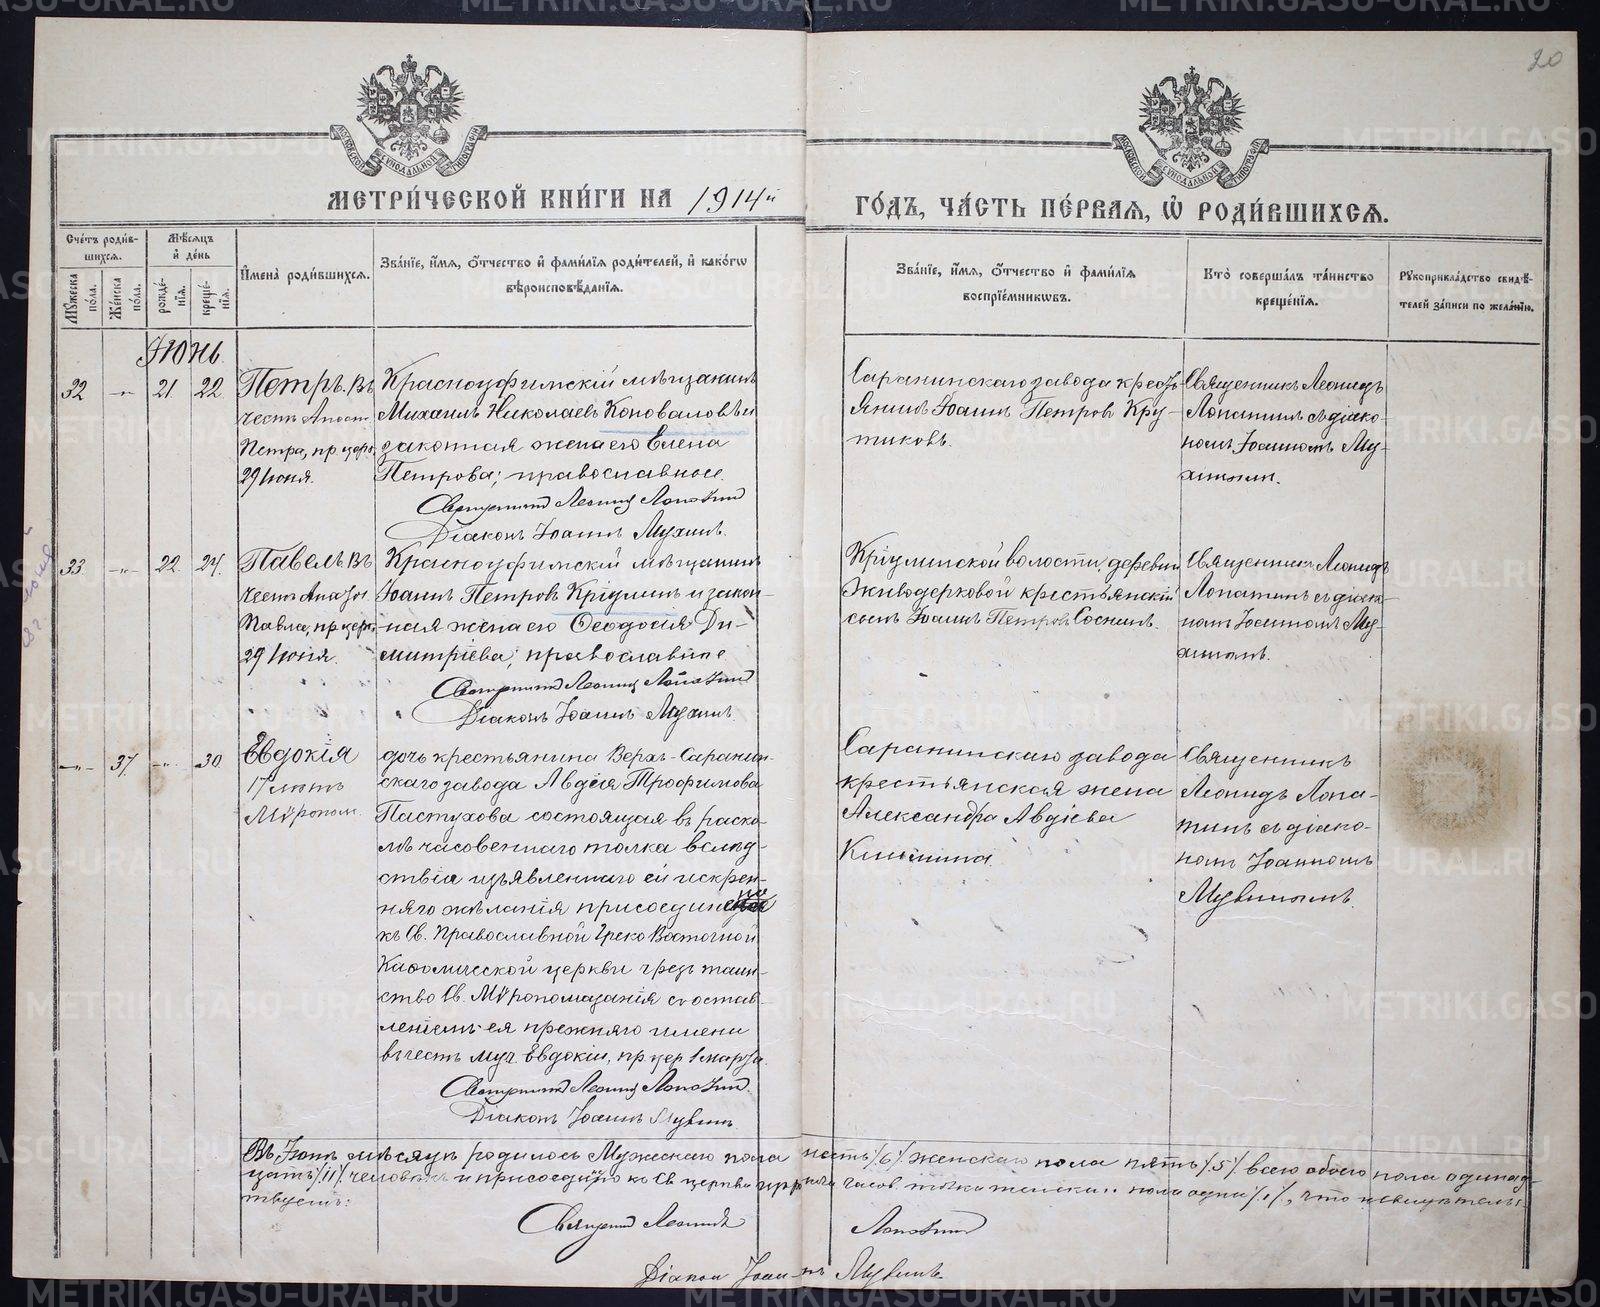 20
МЕТРИ́ЧЕСКОЙ КНИ́ГИ НА 1914й
ГО́ДЪ, ЧА́СТЬ ПЕ́РВАЯ, Ѽ РОДИ́ВШИХСЯ.
Сче́тъ роди́в-
шихся.
Мꙋжеска по́ла.
Же́нска по́ла.
Мѣ́сяцъ и де́нь
рожде́-
нїя.
креще́-
нїя.
И҆мена̀ роди́вшихся.
Зва́нїе, и҆́мя, ѻ҆́тчество и҆ фами́лїя роди́телей, и҆ како́гѡ
вѣроисповѣ́данїя.
Зва́нїе, и҆́мя, ѻ҆́тчество и҆ фами́лїя
воспрїе́мникѡвъ.
Кто̀ соверша́лъ та́инство
креще́нїя.
Рꙋкоприкла́дство свидѣ́-
телей за́писи по жела́нїю.
Іюнь
32 -"- 21 22
Петръ. Въ
честь Апост
Петра, пр. церк.
29 Іюня.
Красноуфимскій мѣщанинъ
Михаилъ Николаевъ Коноваловъ и
законная жена его Елена
Петрова; православные.
Священникъ Леонидъ Лопатинъ
Діаконъ Іоаннъ Мухинъ.
Саранинскаго завода кресть-
янинъ Іоаннъ Петровъ Кру-
тиковъ.
Священникъ Леонидъ
Лопатинъ съ діако-
номъ Іоанномъ Му-
хинымъ.
33 -"- 22 24
Павелъ. Въ
честь Апост
Павла, пр. церк.
29 Іюня.
Красноуфимскій мѣщанинъ
Іоаннъ Петровъ Кріулинъ и закон-
ная жена его Ѳеодосія Ди-
митріева; православные
Священникъ Леонидъ Лопатинъ
Діаконъ Іоаннъ Мухинъ
Кріулинской волости, деревни
Живодерковой крестьянскій
сынъ Іоаннъ Петровъ Соснинъ.
Священникъ Леонидъ
Лопатинъ съ діако-
номъ Іоанномъ Му-
хинымъ.
-"- 37 -"- 30
Евдокія
17 лѣтъ
Мѵропом.
дочь крестьянина Верхъ-Саранин-
скаго завода Авдѣя Трофимова
Пастухова состоящая въ раско-
лѣ часовеннаго толка вслѣд-
ствіе изъявленнаго ей искрен-
няго желанія присоединена
къ Св. Православной Греко Восточной
Каѳолической церкви чрезъ таин-
ство Св. Мѵропомазанія съ остав-
леніемъ ея прежняго имени
въ честь муч. Евдокіи, пр. цер. 1 марта.
Священникъ Леонидъ Лопатинъ
Діаконъ Іоаннъ Мухинъ
Саранинскаго завода
крестьянская жена
Александра Авдіева
Священникъ
Леонидъ Лопа-
тинъ съ діако-
номъ Іоанномъ
Мухинымъ.
Въ Іюнѣ мѣсяцѣ родилось Мужескаго пола шесть /6/ женскаго пола пять /5/ всего обоего пола одинад-
цать /11/ человѣкъ и присоединено ко Св церкви часов. толка женска. пола одна /1/, что и свидѣтель-
ствуемъ:
Священникъ Леонидъ Лопатинъ
Діаконъ Іоаннъ Мухинъ.